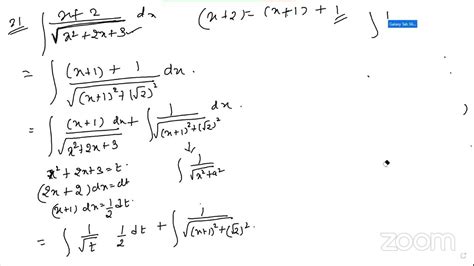 21 ∫ x+2 / √(x²+2x+3) dx (x+2) = (x+1) + 1 ∫ 1
= ∫ (x+1) + 1 / √((x+1)² + (√2)²) dx.
= ∫ (x+1) dx / √(x²+2x+3) + ∫ 1 / √((x+1)² + (√2)²) dx.
x²+2x+3 = t. ∫ 1 / √(x²+a²)
(2x+2) dx = dt
(x+1) dx = 1/2 dt.
= ∫ 1/√t 1/2 dt + ∫ 1 / √((x+1)² + (√2)²)
zoom